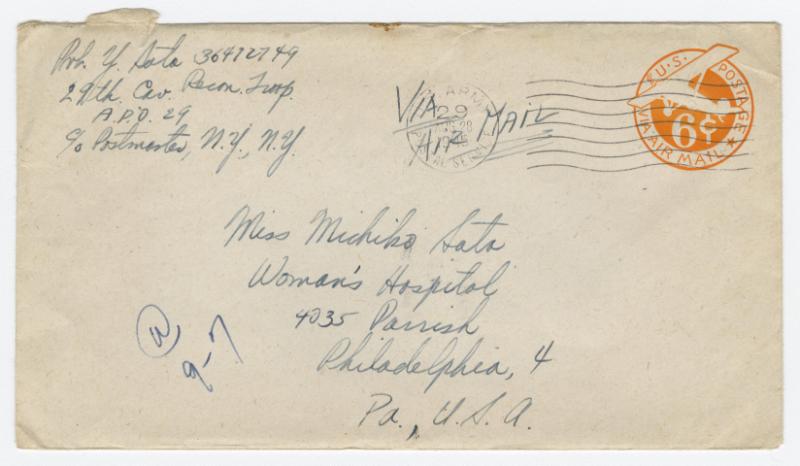 Pvt. Y. Sato 36472749
29th. Cav. Recon. Troop.
A.P.O. 29
c/o Postmaster, N.Y., N.Y.
VIA
AIR MAIL
U.S. ARMY
29
POSTAL SERVICE
U.S. POSTAGE
6¢
VIA AIR MAIL
Miss Michiko Sato
Woman's Hospital
4035 Parrish
Philadelphia, 4
Pa., U.S.A.
9-7